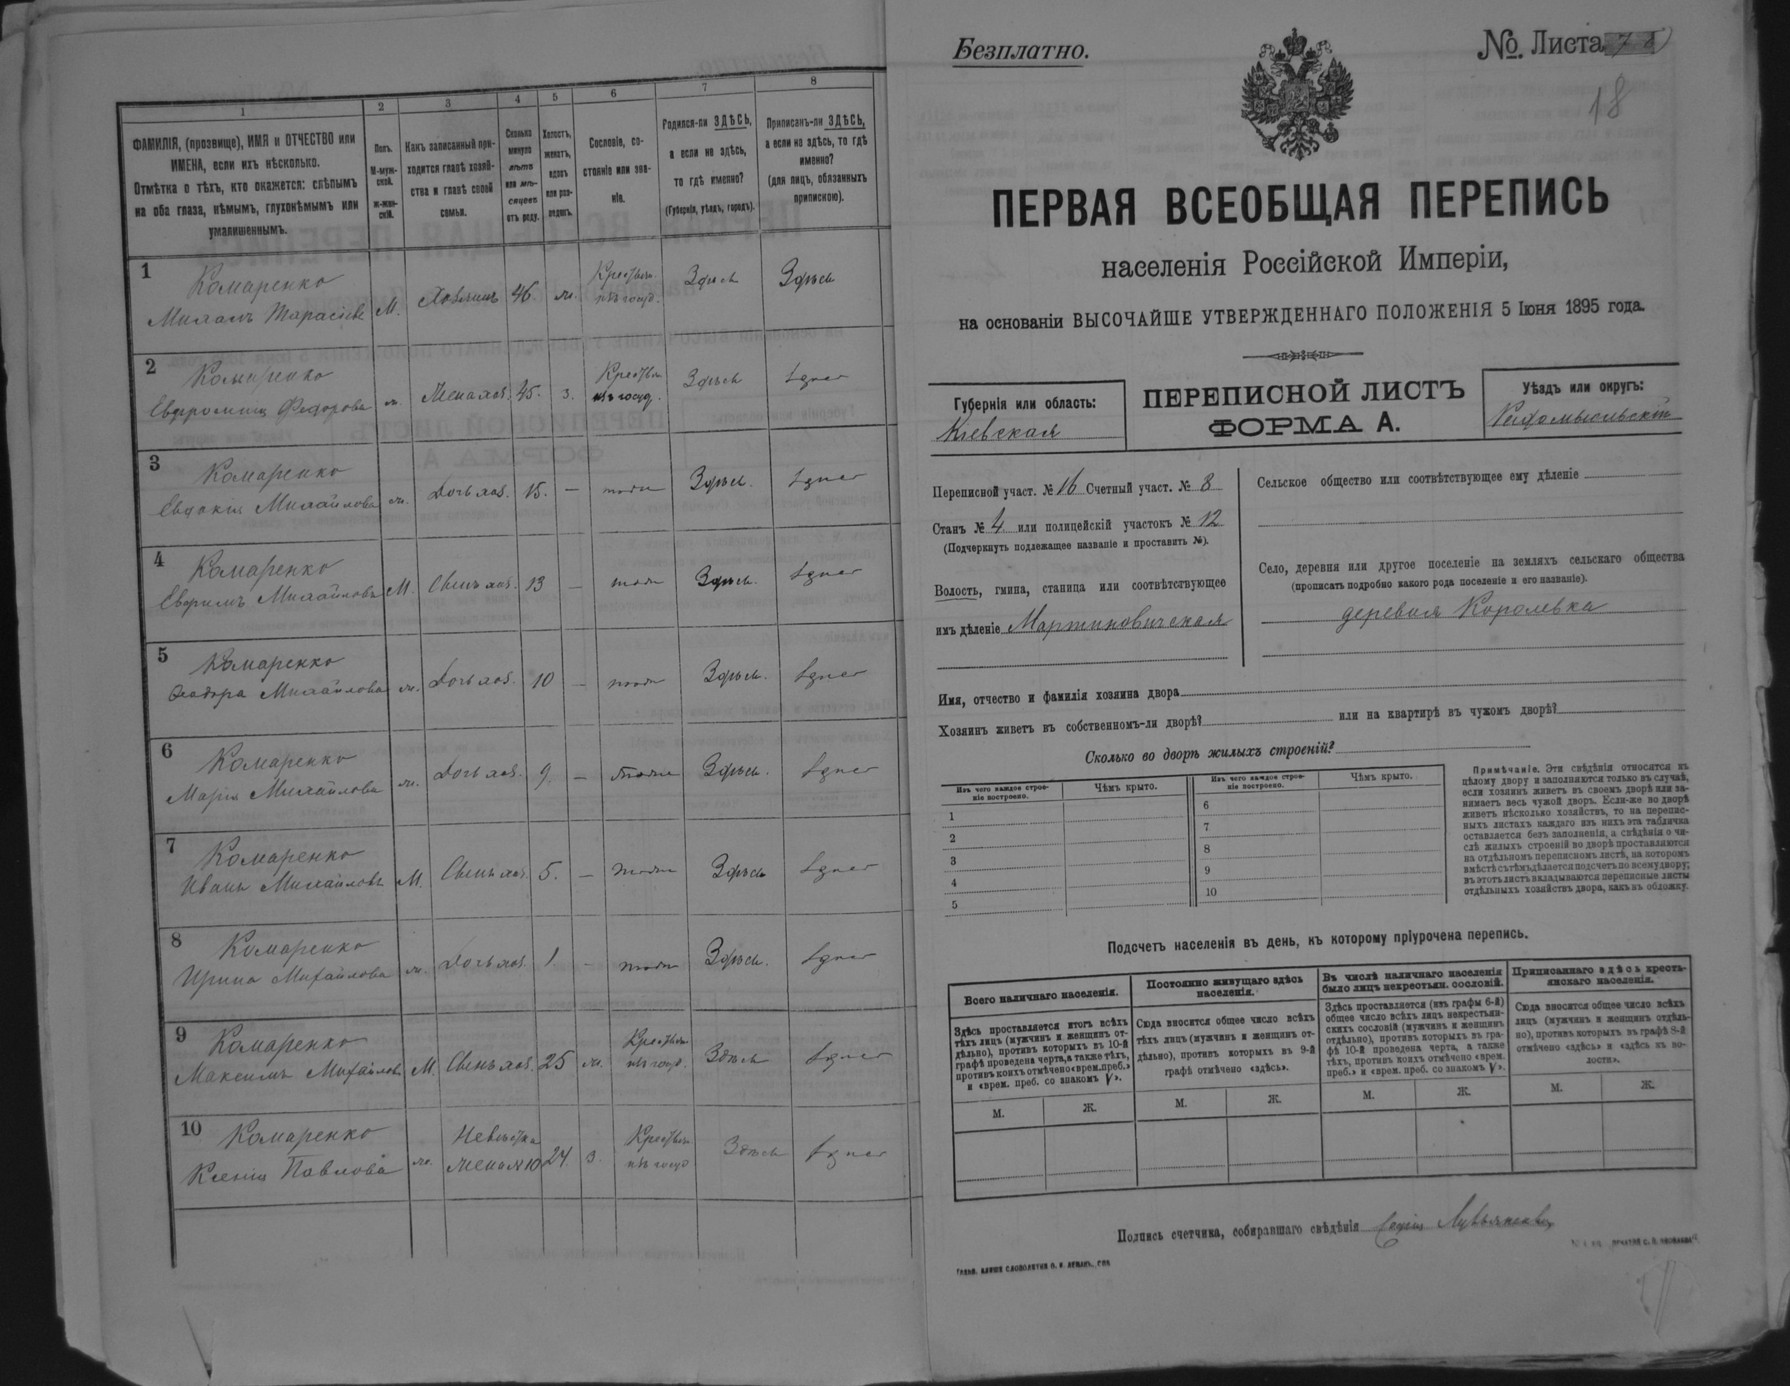 1 2 3 4 5 6 7 8
ФАМИЛІЯ, (прозвище), ИМЯ и ОТЧЕСТВО или
ИМЕНА, если ихъ нѣсколько.
Отмѣтка о тѣхъ, кто окажется: слѣпымъ
на оба глаза, нѣмымъ, глухонѣмымъ или
умалишеннымъ.
Полъ.
М-муж-
ской.
Ж-жен-
скій.
Какъ записанный при-
ходится главѣ хозяй-
ства и главѣ своей
семьи.
Сколько
минуло
лѣтъ
или мѣ-
сяцевъ
отъ роду.
Холостъ,
женатъ,
вдовъ
или раз-
веденъ.
Сословіе, со-
стояніе или зва-
ніе.
Родился-ли ЗДѢСЬ,
а если не здѣсь,
то гдѣ именно?
(Губернія, уѣздъ, городъ).
Приписанъ-ли ЗДѢСЬ,
а если не здѣсь, то гдѣ
именно?
(для лицъ, обязанныхъ
припискою).
1 Комаренко
М. 46 Здѣсь Здѣсь
2 Комаренко
Жена хоз. 45. з. Здѣсь
3 Комаренко
Евдокія Михайлова Дочь хоз. 15. — Здѣсь.
4 Комаренко
Ефримъ Михайловъ М. Сынъ хоз. 13 — Здѣсь.
5 Комаренко
Михайлова Дочь хоз. 10 — Здѣсь.
6 Комаренко
Марія Михайлова Дочь хоз. 9. — Здѣсь.
7 Комаренко
Иванъ Михайловъ М. Сынъ хоз. 5. — Здѣсь
8 Комаренко
Ирина Михайлова Дочь хоз. 1 - Здѣсь.
9 Комаренко
Максимъ Михайловъ М. Сынъ хоз. 25 Здѣсь
10 Комаренко
Ксенія Павлова Невѣстка
жена №10 24. з. Здѣсь
Безплатно.
№ Листа
18
ПЕРВАЯ ВСЕОБЩАЯ ПЕРЕПИСЬ
населенія Россійской Имперіи,
на основаніи ВЫСОЧАЙШЕ УТВЕРЖДЕННАГО ПОЛОЖЕНІЯ 5 Іюня 1895 года.
Губернія или область:
Кіевская
ПЕРЕПИСНОЙ ЛИСТЪ
ФОРМА А.
Уѣздъ или округъ:
Радомысльскій
Переписной участ. № 16 Счетный участ. № 8
Станъ № 4 или полицейскій участокъ № 12
(Подчеркнуть подлежащее названіе и проставить №).
Волость, гмина, станица или соотвѣтствующее
имъ дѣленіе Мартиновичская
Сельское общество или соотвѣтствующее ему дѣленіе
Село, деревня или другое поселеніе на земляхъ сельскаго общества
(прописать подробно какого рода поселеніе и его названіе).
деревня Королевка
Имя, отчество и фамилія хозяина двора
Хозяинъ живетъ въ собственномъ-ли дворѣ? или на квартирѣ въ чужомъ дворѣ?
Сколько во дворѣ жилыхъ строеній?
Изъ чего каждое строе-
ніе построено.
Чѣмъ крыто.
Изъ чего каждое строе-
ніе построено.
Чѣмъ крыто.
1 6
2 7
3 8
4 9
5 10
Примѣчаніе. Эти свѣдѣнія относятся къ
цѣлому двору и заполняются только въ случаѣ,
если хозяинъ живетъ въ своемъ дворѣ или за-
нимаетъ весь чужой дворъ. Если-же во дворѣ
живетъ нѣсколько хозяйствъ, то на перепис-
ныхъ листахъ каждаго изъ нихъ эта табличка
оставляется безъ заполненія, а свѣдѣнія о чи-
слѣ жилыхъ строеній во дворѣ проставляются
на отдѣльномъ переписномъ листѣ, на которомъ
вмѣстѣ съ тѣмъ дѣлается подсчетъ по всему двору;
въ этотъ листъ вкладываются переписные листы
отдѣльныхъ хозяйствъ двора, какъ въ обложку.
Подсчетъ населенія въ день, къ которому пріурочена перепись.
Всего наличнаго населенія.
Здѣсь проставляется итогъ всѣхъ
лицъ (мужчинъ и женщинъ от-
дѣльно), противъ которыхъ въ 10-й
графѣ проведена черта, а также тѣхъ,
противъ коихъ отмѣчено «врем. преб.»
и «врем. преб. со знакомъ V».
Постоянно живущаго здѣсь
населенія.
Сюда вносится общее число всѣхъ
тѣхъ лицъ (мужчинъ и женщинъ от-
дѣльно), противъ которыхъ въ 9-й
графѣ отмѣчено «здѣсь».
Въ числѣ наличнаго населенія
было лицъ некрестьян. сословій.
Здѣсь проставляется (изъ графы 6-й)
общее число всѣхъ лицъ некрестьян-
скихъ сословій (мужчинъ и женщинъ
отдѣльно), противъ которыхъ въ гра-
фѣ 10-й проведена черта, а также
тѣхъ, противъ коихъ отмѣчено «врем.
преб.» и «врем. преб. со знакомъ V».
Приписаннаго здѣсь кресть-
янскаго населенія.
Сюда вносится общее число всѣхъ
лицъ (мужчинъ и женщинъ отдѣль-
но), противъ которыхъ въ графѣ 8-й
отмѣчено «здѣсь» и «здѣсь къ во-
лости».
М. Ж. М. Ж. М. Ж. М. Ж.
Подпись счетчика, собиравшаго свѣдѣнія